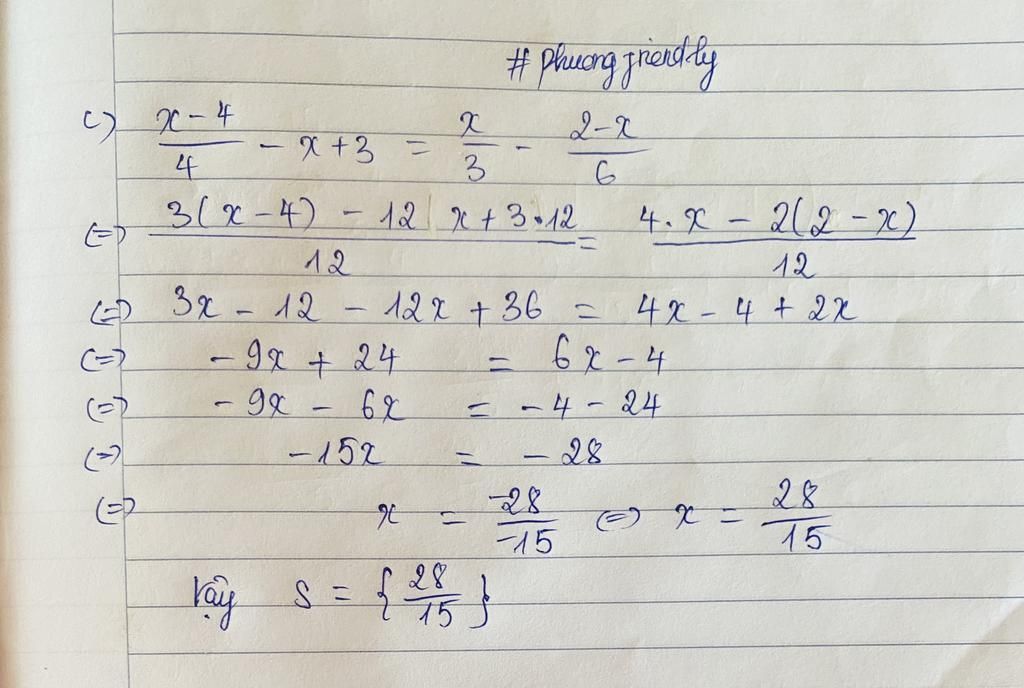 # phuongfriendly
c) \frac{x-4}{4} - x + 3 = \frac{x}{3} - \frac{2-x}{6}
(=) \frac{3(x-4) - 12 x + 3.12}{12} = \frac{4.x - 2(2-x)}{12}
(=) 3x - 12 - 12x + 36 = 4x - 4 + 2x
(=) -9x + 24 = 6x - 4
(=) -9x - 6x = -4 - 24
(=) -15x = -28
(=) x = \frac{-28}{-15} (=) x = \frac{28}{15}
Vậy S = {\frac{28}{15}}